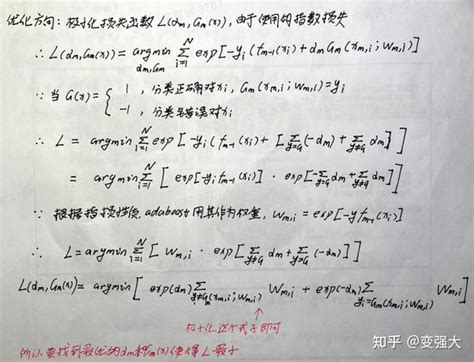 优化方向: 极小化损失函数 L(dm, Gm(x)), 由于使用的指数损失
∴ L(dm, Gm(x)) = argmin_{dm,Gm} Σ_{i=1}^{N} exp[-yi(fm-1(xi) + dm Gm(xm,i; Wm,i)]
∵ 当 G(x) = { 1, 分类正确对xi, Gm(xm,i; Wm,i) = yi
-1, 分类错误对xi
∴ L = argmin Σ_{i=1}^{N} exp{-yi(fm-1(xi) + [Σ_{y=G}(-dm) + Σ_{y≠G} dm]}
= argmin Σ_{i=1}^{N} [exp[-yi fm-1(xi)] · exp[-Σ_{y=G} dm + Σ_{y≠G} dm]
∵ 根据指损性质 adaboost 用其作为权重, Wm,i = exp[-y fm-1(xi)]
∴ L = argmin Σ_{i=1}^{N} [Wm,i · exp[Σ_{y≠G} dm + Σ_{y=G}(-dm)]
L(dm, Gm(x)) = argmin [exp(dm) Σ_{y≠Gm(xm,i; Wm,i)} Wm,i + exp(-dm) Σ_{yi=Gm(xm,i; Wm,i)} Wm,i]
极小化这个式子即可
所以要找到最优的dm和Gm(x)使得L最小
知乎 @变强大